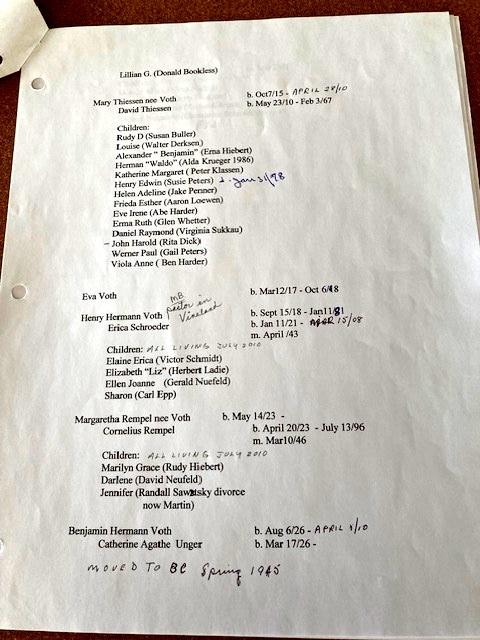 Lillian G. (Donald Bookless)
Mary Thiessen nee Voth b. Oct7/15 - APRIL 28/10
David Thiessen b. May 23/10 - Feb 3/67
Children:
Rudy D (Susan Buller)
Louise (Walter Derksen)
Alexander " Benjamin" (Erna Hiebert)
Herman "Waldo" (Alda Krueger 1986)
Katherine Margaret ( Peter Klassen)
Henry Edwin (Susie Peters) d. Jan 31/98
Helen Adeline (Jake Penner)
Frieda Esther (Aaron Loewen)
Eve Irene (Abe Harder)
Erma Ruth (Glen Whetter)
Daniel Raymond (Virginia Sukkau)
- John Harold (Rita Dick)
Werner Paul (Gail Peters)
Viola Anne ( Ben Harder)
Eva Voth b. Mar12/17 - Oct 6/18
MB
pastor in
Vineland
Henry Hermann Voth b. Sept 15/18 - Jan11/81
Erica Schroeder b. Jan 11/21 - APR 15/08
m. April /43
Children: ALL LIVING JULY 2010
Elaine Erica (Victor Schmidt)
Elizabeth "Liz" (Herbert Ladie)
Ellen Joanne (Gerald Nuefeld)
Sharon (Carl Epp)
Margaretha Rempel nee Voth b. May 14/23 -
Cornelius Rempel b. April 20/23 - July 13/96
m. Mar10/46
Children: ALL LIVING JULY 2010
Marilyn Grace (Rudy Hiebert)
Darlene (David Neufeld)
Jennifer (Randall Sawatsky divorce
now Martin)
Benjamin Hermann Voth b. Aug 6/26 - APRIL 1/10
Catherine Agathe Unger b. Mar 17/26 -
MOVED TO BC Spring 1945